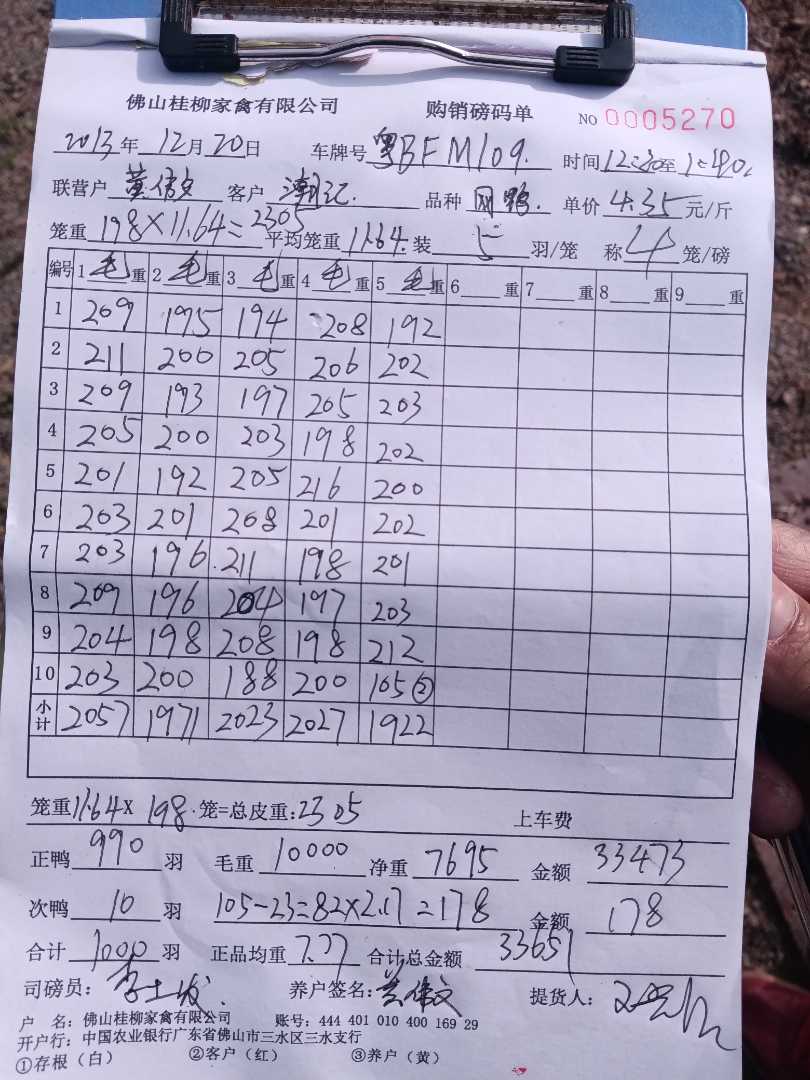 佛山桂柳家禽有限公司 购销磅码单 NO 0005270
2013年12月20日 车牌号 粤BFM109. 时间 12:20至1:40
联营户 黄伟文 客户 潮记. 品种 网鸭. 单价 4.35 元/斤
笼重 198×11.64=2305 平均笼重 11.64. 装 5 羽/笼 称 4 笼/磅
编号 1 毛 重 2 毛 重 3 毛 重 4 毛 重 5 毛 重 6 重 7 重 8 重 9 重
1 209 195 194 208 192
2 211 200 205 206 202
3 209 193 197 205 203
4 205 200 203 198 202
5 201 192 205 216 200
6 203 201 208 201 202
7 203 196 211 198 201
8 209 196 204 197 203
9 204 198 208 198 212
10 203 200 188 200 105 ②
小计 2057 1971 2023 2027 1922
笼重 11.64× 198 笼=总皮重: 2305 上车费
正鸭 990 羽 毛重 10000 净重 7695 金额 33473
次鸭 10 羽 105-23=82×2.17=178 金额 178
合计 1000 羽 正品均重 7.77 合计总金额 33651
司磅员: 养户签名: 黄伟文 提货人:
户 名: 佛山桂柳家禽有限公司 账号: 444 401 010 400 169 29
开户行: 中国农业银行广东省佛山市三水区三水支行
①存根（白） ②客户（红） ③养户（黄）